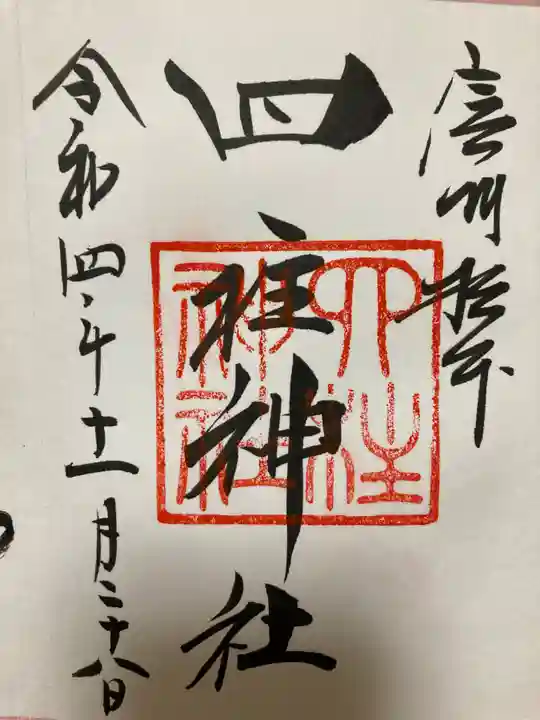 信州松本
四柱神社
四柱神社
令和四年十一月二十八日